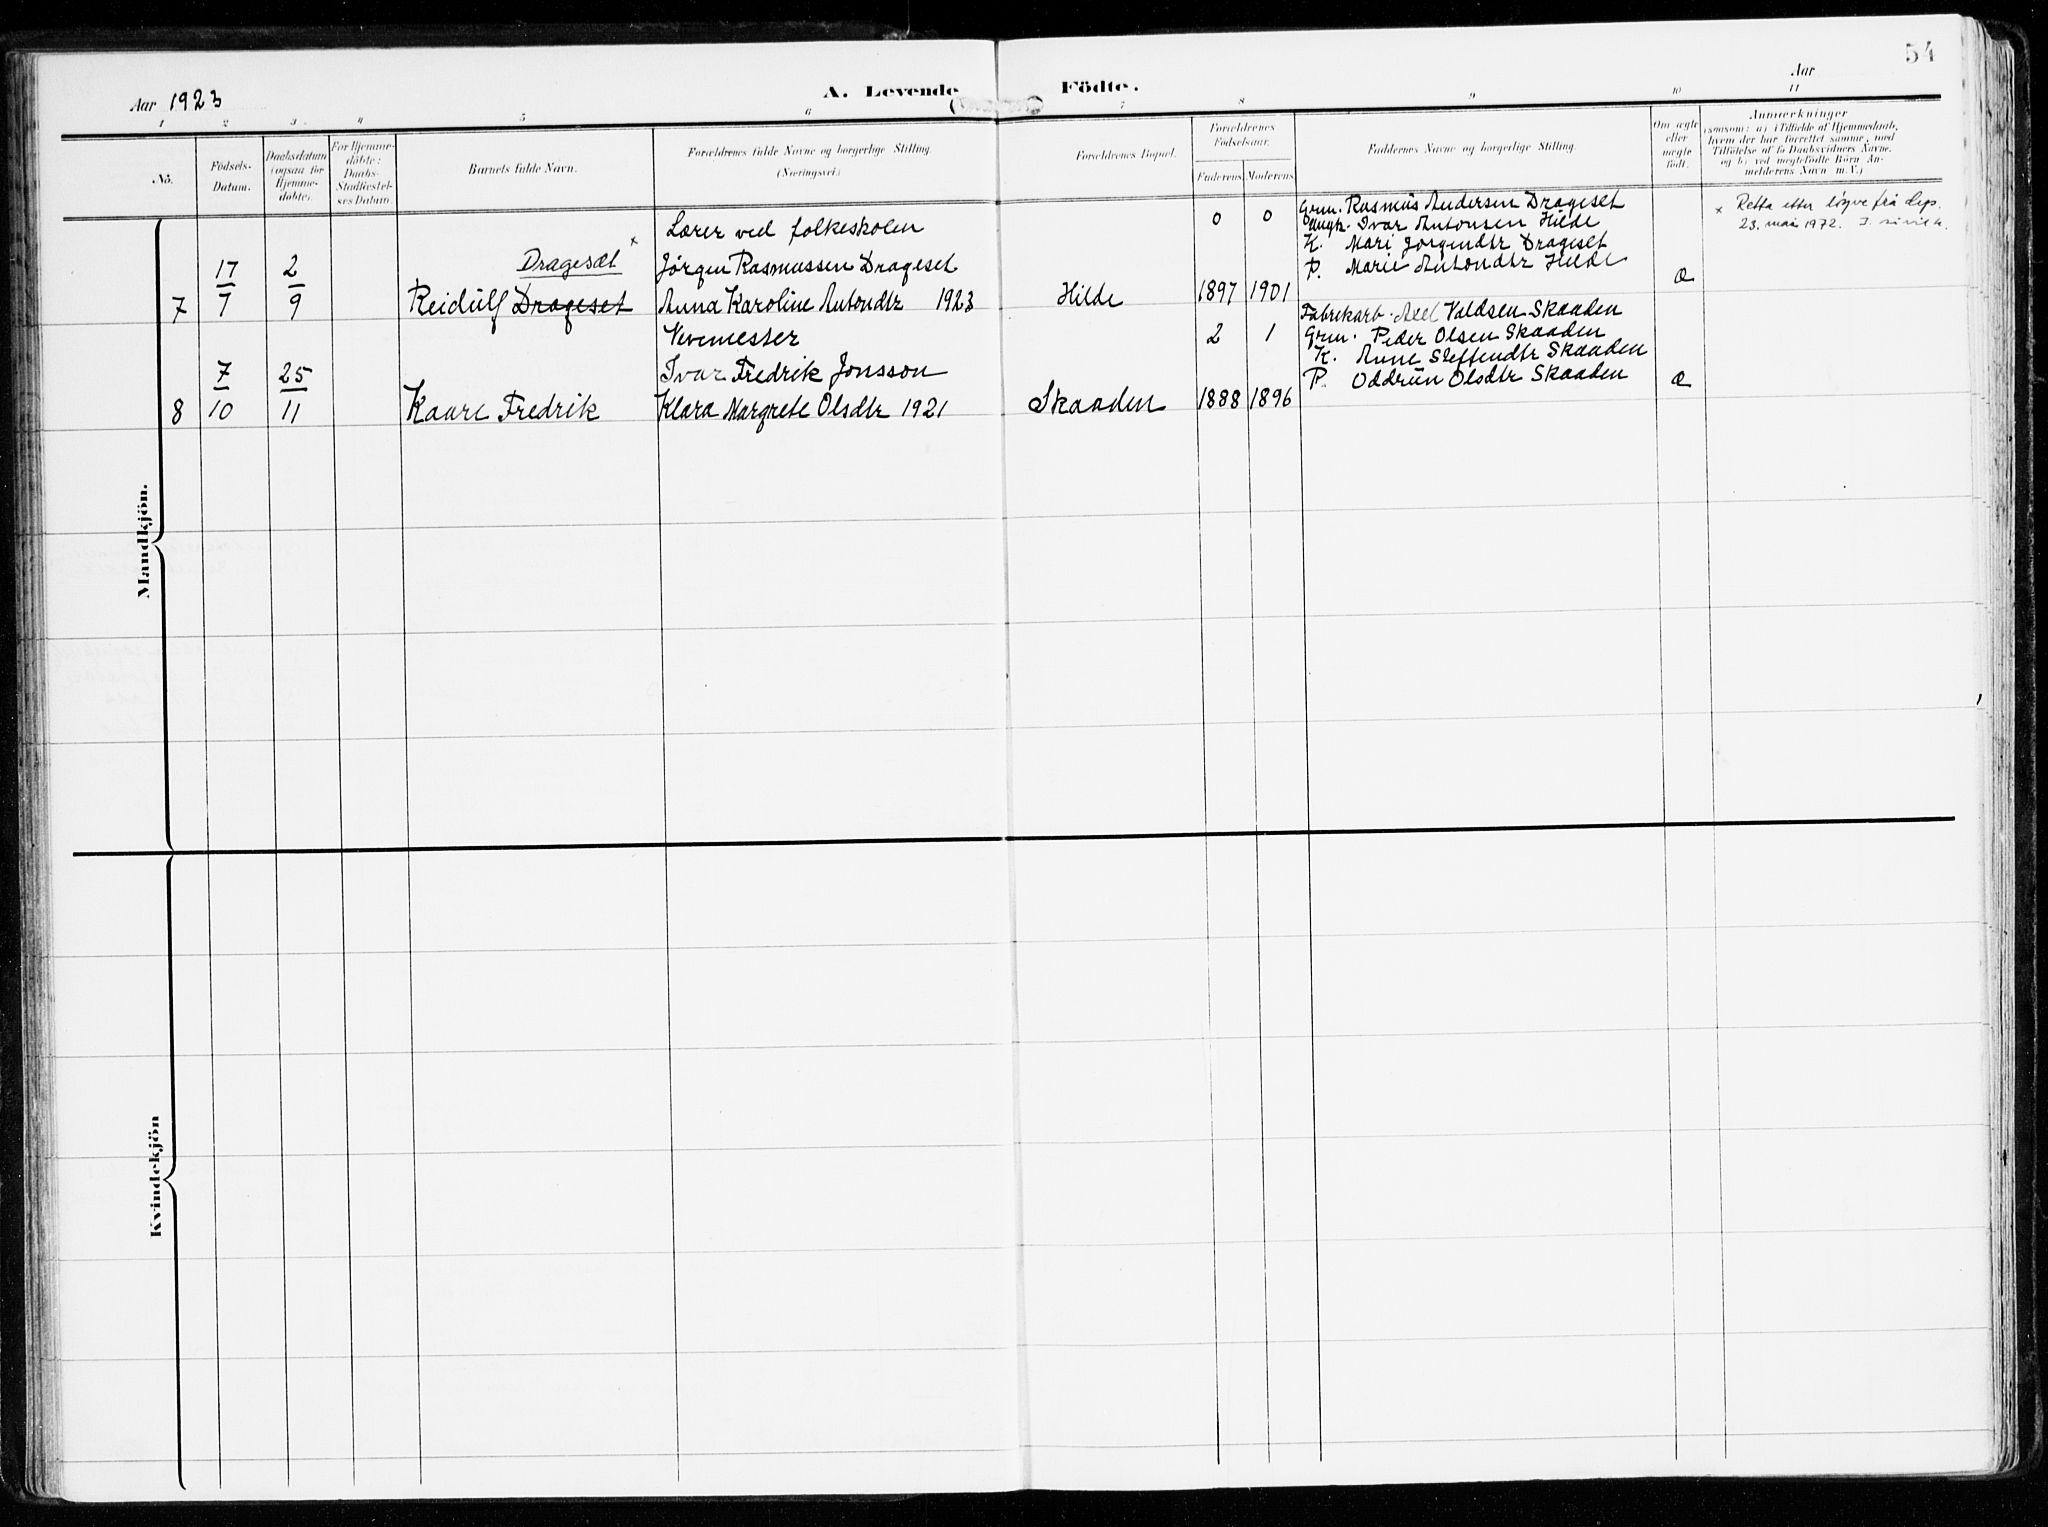 54
Aar 1923
A. Levende Födte.
Aar
1 2 3 4 5 6 7 8 9 10 11
No.
Födsels-
Datum.
Daabsdatum
(ogsaa for
Hjemme-
döbte).
For Hjemme-
döbte:
Daabs-
Stadfæstel-
ses Datum.
Barnets fulde Navn.
Forældrenes fulde Navne og borgerlige Stilling.
(Næringsvei.)
Forældrenes Bopæl.
Forældrenes
Födselsaar.
Faderens Moderens
Faddernes Navne og borgerlige Stilling.
Om ægte
eller
uægte
födt.
Anmærkninger
(saasom: a) i Tilfælde af Hjemmedaab,
hvem der har forrettet samme, med
Tilföielse af to Daabsvidners Navne.
og b) ved uægtefödte Börn An-
melderens Navn m. V.)
Mandkjön.
7
17
7
2
9
Dragesæt x
Reidulf Drageset
Lærer ved folkeskolen
Jørgen Rasmussen Drageset
Anna Karoline Antondtr 1923
Hilde
0 0
1897 1901
Grm. Rasmus Andersen Drageset
Ungk. Ivar Antonsen Hilde
K. Mari Jørgendtr Drageset
P. Marie Antondtr Hilde
Æ
x Retta etter løyve frå dep.
23. mai 1972.
8
7
10
25
11
Kaare Fredrik
Vevemester
Ivar Fredrik Jonsson
Klara Margrete Olsdtr 1921
Skaaden
2 1
1888 1896
Fabrikarb. Axel Valdsen Skaaden
Grm. Peder Olsen Skaaden
K. Anne Steffendtr Skaaden
P. Oddrun Olsdtr Skaaden
Æ
Kvindekjön